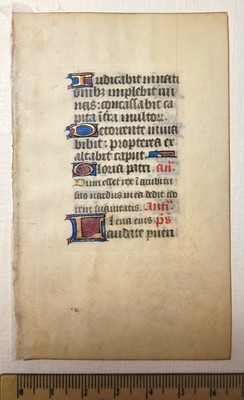 Iudicabit in nati
onib; implebit rui
nas: conq̃ssabit ca
pita in t̃ra multor.
De torrente in uia
bibit: propterea ex
altabit caput.
Gloria patri. añ.
Dum esset rex in accubitu
suo nardus mea dedit odo
rem suauitatis. Antĩ.
Leua eius. ps
Laudate pueri